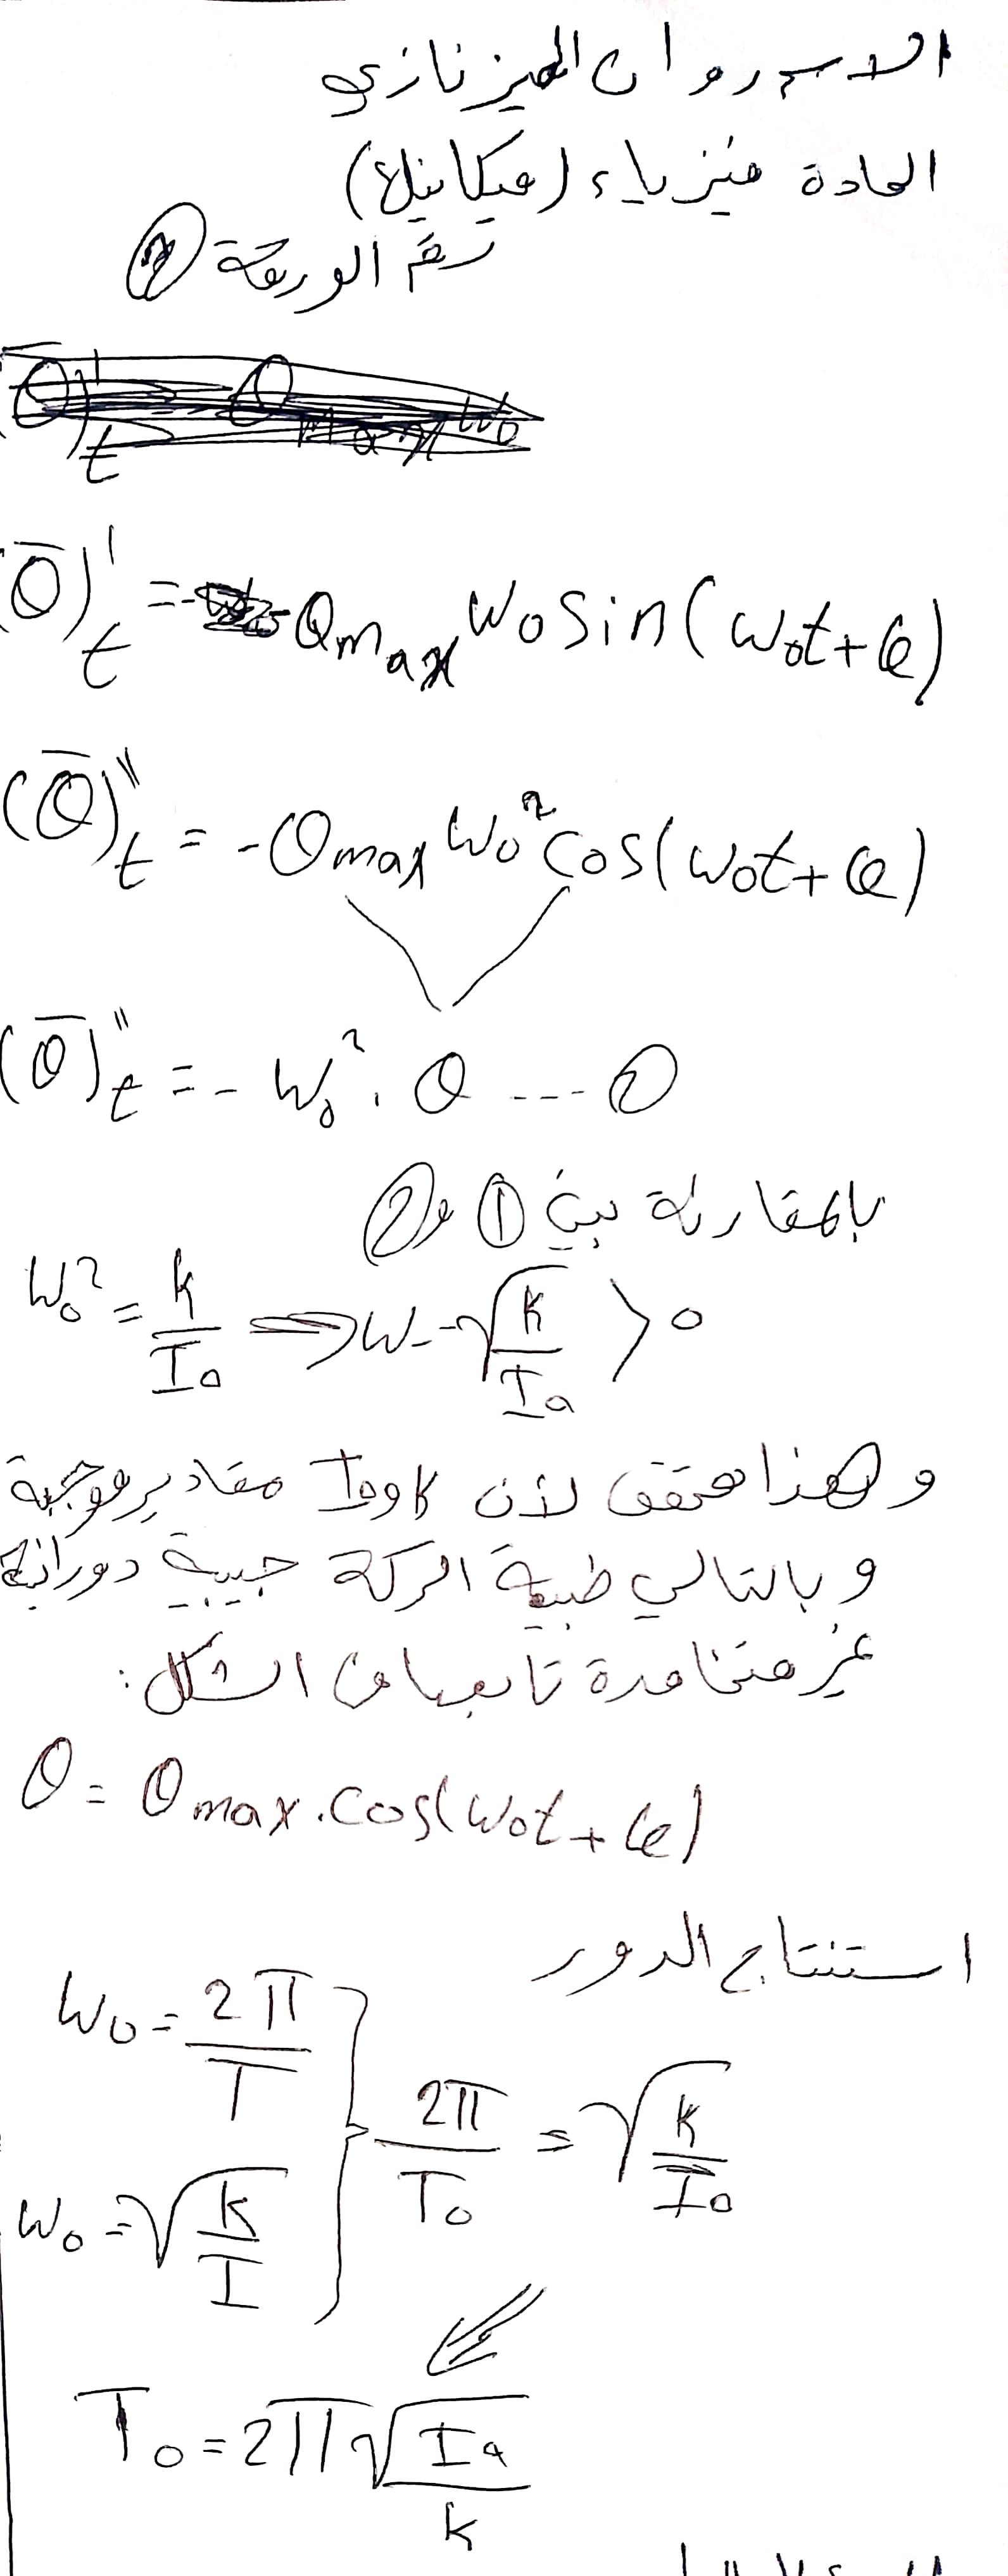 الاسم روان الميزنازي
المادة فيزياء (ميكانيك)
رقم الورقة (2)
(θ̄)'t = -θmax ω0 sin(ω0t+φ)
(θ̄)''t = -θmax ω0² cos(ω0t+φ)
(θ̄)''t = -ω0² . θ ---- (2)
بالمقارنة بين (1) و (2)
ω0² = k/I0 ⟹ ω = √(k/I0) > 0
وهذا محقق لأن k و I0 مقادير موجبة
وبالتالي طبيعة الحركة جيبية دورانية
غير متخامدة تابعها من الشكل:
θ = θmax . cos(ω0t + φ)
استنتاج الدور
ω0 = 2π/T
ω0 = √(k/I) } 2π/T0 = √(k/I0)
T0 = 2π√(I0/k)